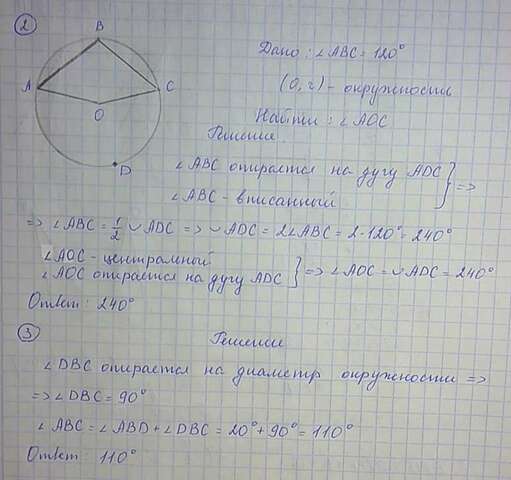 2
B
A
C
O
D
Дано: ∠ABC = 120°
(O, r) - окружность
Найти: ∠AOC
Решение
∠ABC опирается на дугу ADC
∠ABC - вписанный } =>
=> ∠ABC = 1/2 ∪ADC => ∪ADC = 2∠ABC = 2·120° = 240°
∠AOC - центральной
∠AOC опирается на дугу ADC } => ∠AOC = ∪ADC = 240°
Ответ: 240°
3
Решение
∠DBC опирается на диаметр окружности =>
=> ∠DBC = 90°
∠ABC = ∠ABD + ∠DBC = 20° + 90° = 110°
Ответ: 110°